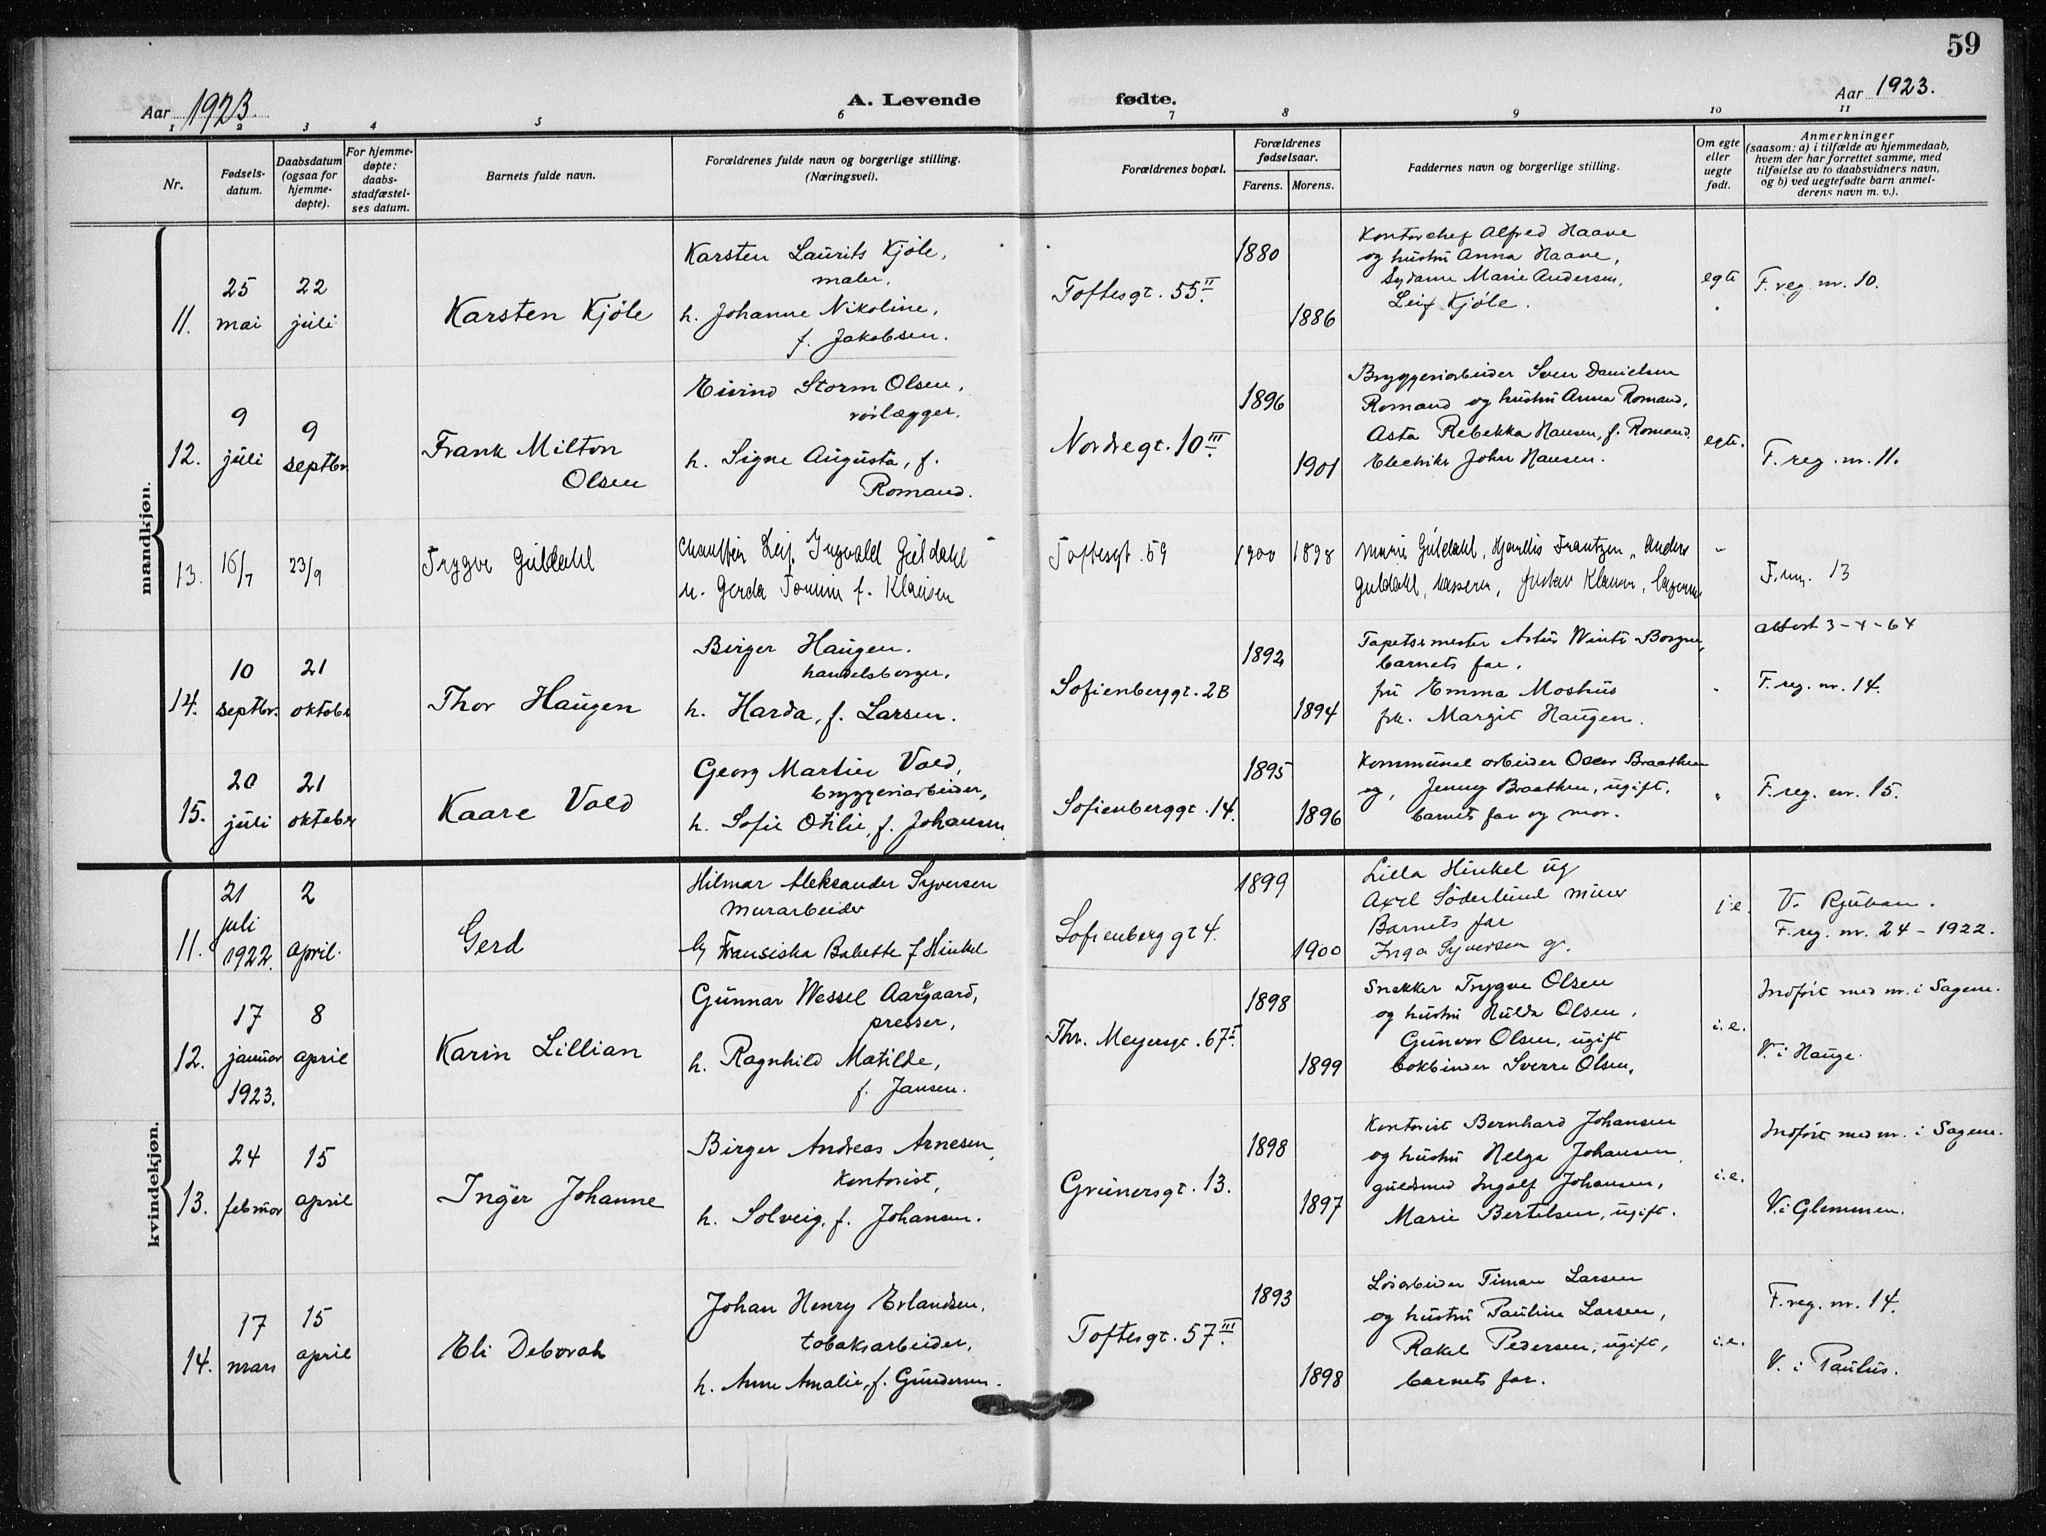 59
Aar 1923.
A. Levende fødte.
Aar 1923.
1 2 3 4 5 6 7 8 9 10 11
Nr.
Fødsels-
datum.
Daabsdatum
(ogsaa for
hjemme-
døpte).
For hjemme-
døpte:
daabs-
stadfæstel-
ses datum.
Barnets fulde navn.
Forældrenes fulde navn og borgerlige stilling.
(Næringsvei).
Forældrenes bopæl.
Forældrenes
fødselsaar.
Farens. Morens.
Faddernes navn og borgerlige stilling.
Om egte
eller
uegte
født.
Anmerkninger
(saasom: a) i tilfælde av hjemmedaab,
hvem der har forrettet samme, med
tilføielse av to daabsvidners navn,
og b) ved uegtefødte barn anmel-
derens navn m. v.).
mandkjøn.
11.
25
mai
22
juli
Karsten Kjøle
Karsten Laurits Kjøle,
maler,
h. Johanne Nikoline,
f. Jakobsen.
Toftesgt. 55 II.
1880
1886
Kontorchef Alfred Haave
og hustru Anna Haave,
Marie Andersen,
Leif Kjøle.
egte
F. reg. nr. 10.
12.
9
juli
9
septbr.
Frank Milton
Olsen
Eivind Storm Olsen,
rørlægger,
h. Signe Augusta, f.
Romand.
Nordregt. 10 III.
1896
1901
Bryggeriarbeider Sven Danielsen
Romand og hustru Anna Romand,
Asta Rebekka Hansen, f. Romand.
Elektriker John Hansen.
egte.
F. reg. nr. 11.
13.
16/7
23/9
Trygve Guldahl
Leif Ingvald Guldahl
h. Gerda f. Klausen
Toftesgt. 59
1900 1898
Marie Guldahl, Hjørdis Frantzen, Anders
Guldahl,
"
F. reg. 13
14.
10
septbr.
21
oktober
Thor Haugen
Birger Haugen.
handelsborger,
h. Harda, f. Larsen.
Sofienberggt. 2B
1892
1894
Tapetsermester
barnets far.
fru Emma Moshus
frk. Margit Haugen.
"
attest 3-4-64
F. reg. nr. 14.
15.
20
juli
21
oktober
Kaare Vold
Georg Martin Vold,
bryggeriarbeider,
h. Sofie Otilie, f. Johansen.
Sofienberggt. 14.
1895
1896
Kommunal arbeider Oscar Braathen
og, Jenny Braathen, ugift,
barnets far og mor.
"
F. reg. nr. 15.
kvindekjøn.
11.
21
juli
1922.
2
april.
Gerd
Hilmar Aleksander Syversen
Murarbeider
og Fransiska Babette f Hinkel
Sofienberg gt 4.
1899
1900
Lilla Hinkel ug
Axel Söderlund murer
Barnets far
Inga Syversen g.
i e.
V. Rjukan.
F. reg. nr. 24 - 1922.
12.
17
januar
1923.
8
april
Karin Lillian
Gunnar Wessel Aargaard,
presser,
h. Ragnhild Matilde,
f. Jansen.
Thv. Meyersgt. 67 I.
1898
1899
Snekker Trygve Olsen
og hustru Hulda Olsen,
Gunvor Olsen, ugift
bokbinder Sverre Olsen,
i. e.
Indført med nr. i Sagene.
V. i Hauge.
13.
24
februar
15
april
Inger Johanne
Birger Andreas Arnesen,
kontorist,
h. Solveig, f. Johansen.
Grünersgt. 13.
1898
1897
Kontorist Bernhard Johansen
og hustru Helga Johansen,
guldsmed Ingolf Johansen,
Marie Bertelsen, ugift.
i. e.
Indført med nr. i Sagene.
V. i Glemmen.
14.
17
mars
15
april
Eli Deborah
Johan Henry Erlandsen,
tobaksarbeider,
h. Anne Amalie, f. Gundersen.
Toftesgt. 57 III.
1893
1898
Løsarbeider Timan Larsen
og hustru Pauline Larsen,
Rakel Pedersen, ugift,
barnets far.
i. e.
F. reg. nr. 14.
V. i Paulus.